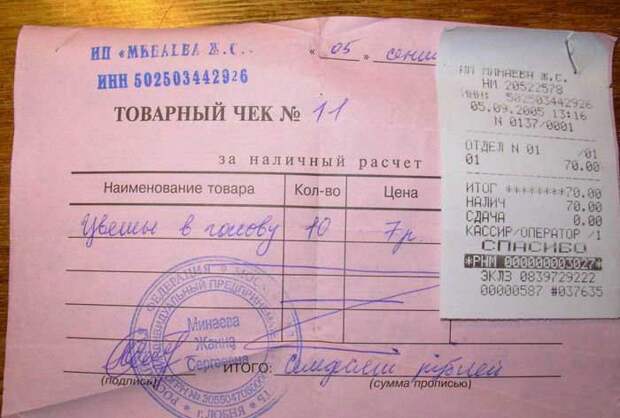 ИП «МИНАЕВА Ж.С.»
ИНН 502503442926
«05» сентя
ТОВАРНЫЙ ЧЕК № 11
за наличный расчет
Наименование товара Кол-во Цена
Цветы в голову 10 7р.
ИТОГО: Семьдесят рублей
(подпись) (сумма прописью)
Минаева
Жанна
Сергеевна
ИНДИВИДУАЛЬНЫЙ ПРЕДПРИНИМАТЕЛЬ
ИП МИНАЕВА Ж.С.
НМ 20522578
ИНН: 502503442926
05.09.2005 13:16
N 0137/0001
ОТДЕЛ N 01 /01
01 70.00
ИТОГ ********70.00
НАЛИЧ 70.00
СДАЧА 0.00
КАССИР/ОПЕРАТОР /1
СПАСИБО
*РНМ 000000003027*
ЭКЛЗ 0839729222
00000587 #037635